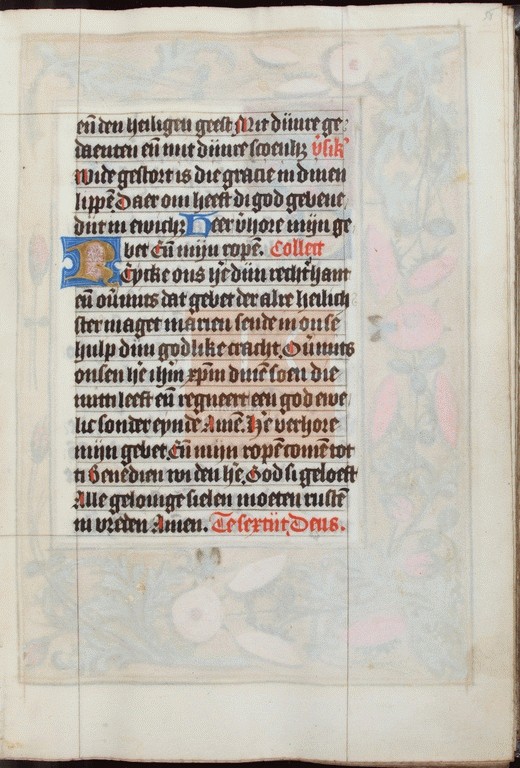 en̄ den heiligen geest Mit dinre ge
daenten en̄ mit dinre scoenhz v̄sikˀ
Wide gestort is die gracie in dinen
lippē Daer om heeft di god gebene
dijt in ewichz Heer v̄hore mijn ge
bet En̄ mijn ropē. Collect
Reycke ons hē dijn rechterhant
en̄ ov̄mits dat gebet der alre heilich
ster maget marien sende in onse
hulp dijn godlike cracht. Ov̄mits
onsen hē ihm̄ xp̄m dinē soen die
mitti leeft en̄ regneert een god ewe
lic sonder eynde Amē. Hē verhore
mijn gebet. En̄ mijn ropē comē tot
ti Benedien wi den hē. God si geloeft
Alle gelouige sielen moeten rustē
in vreden Amen. Te sextijt, Deus.